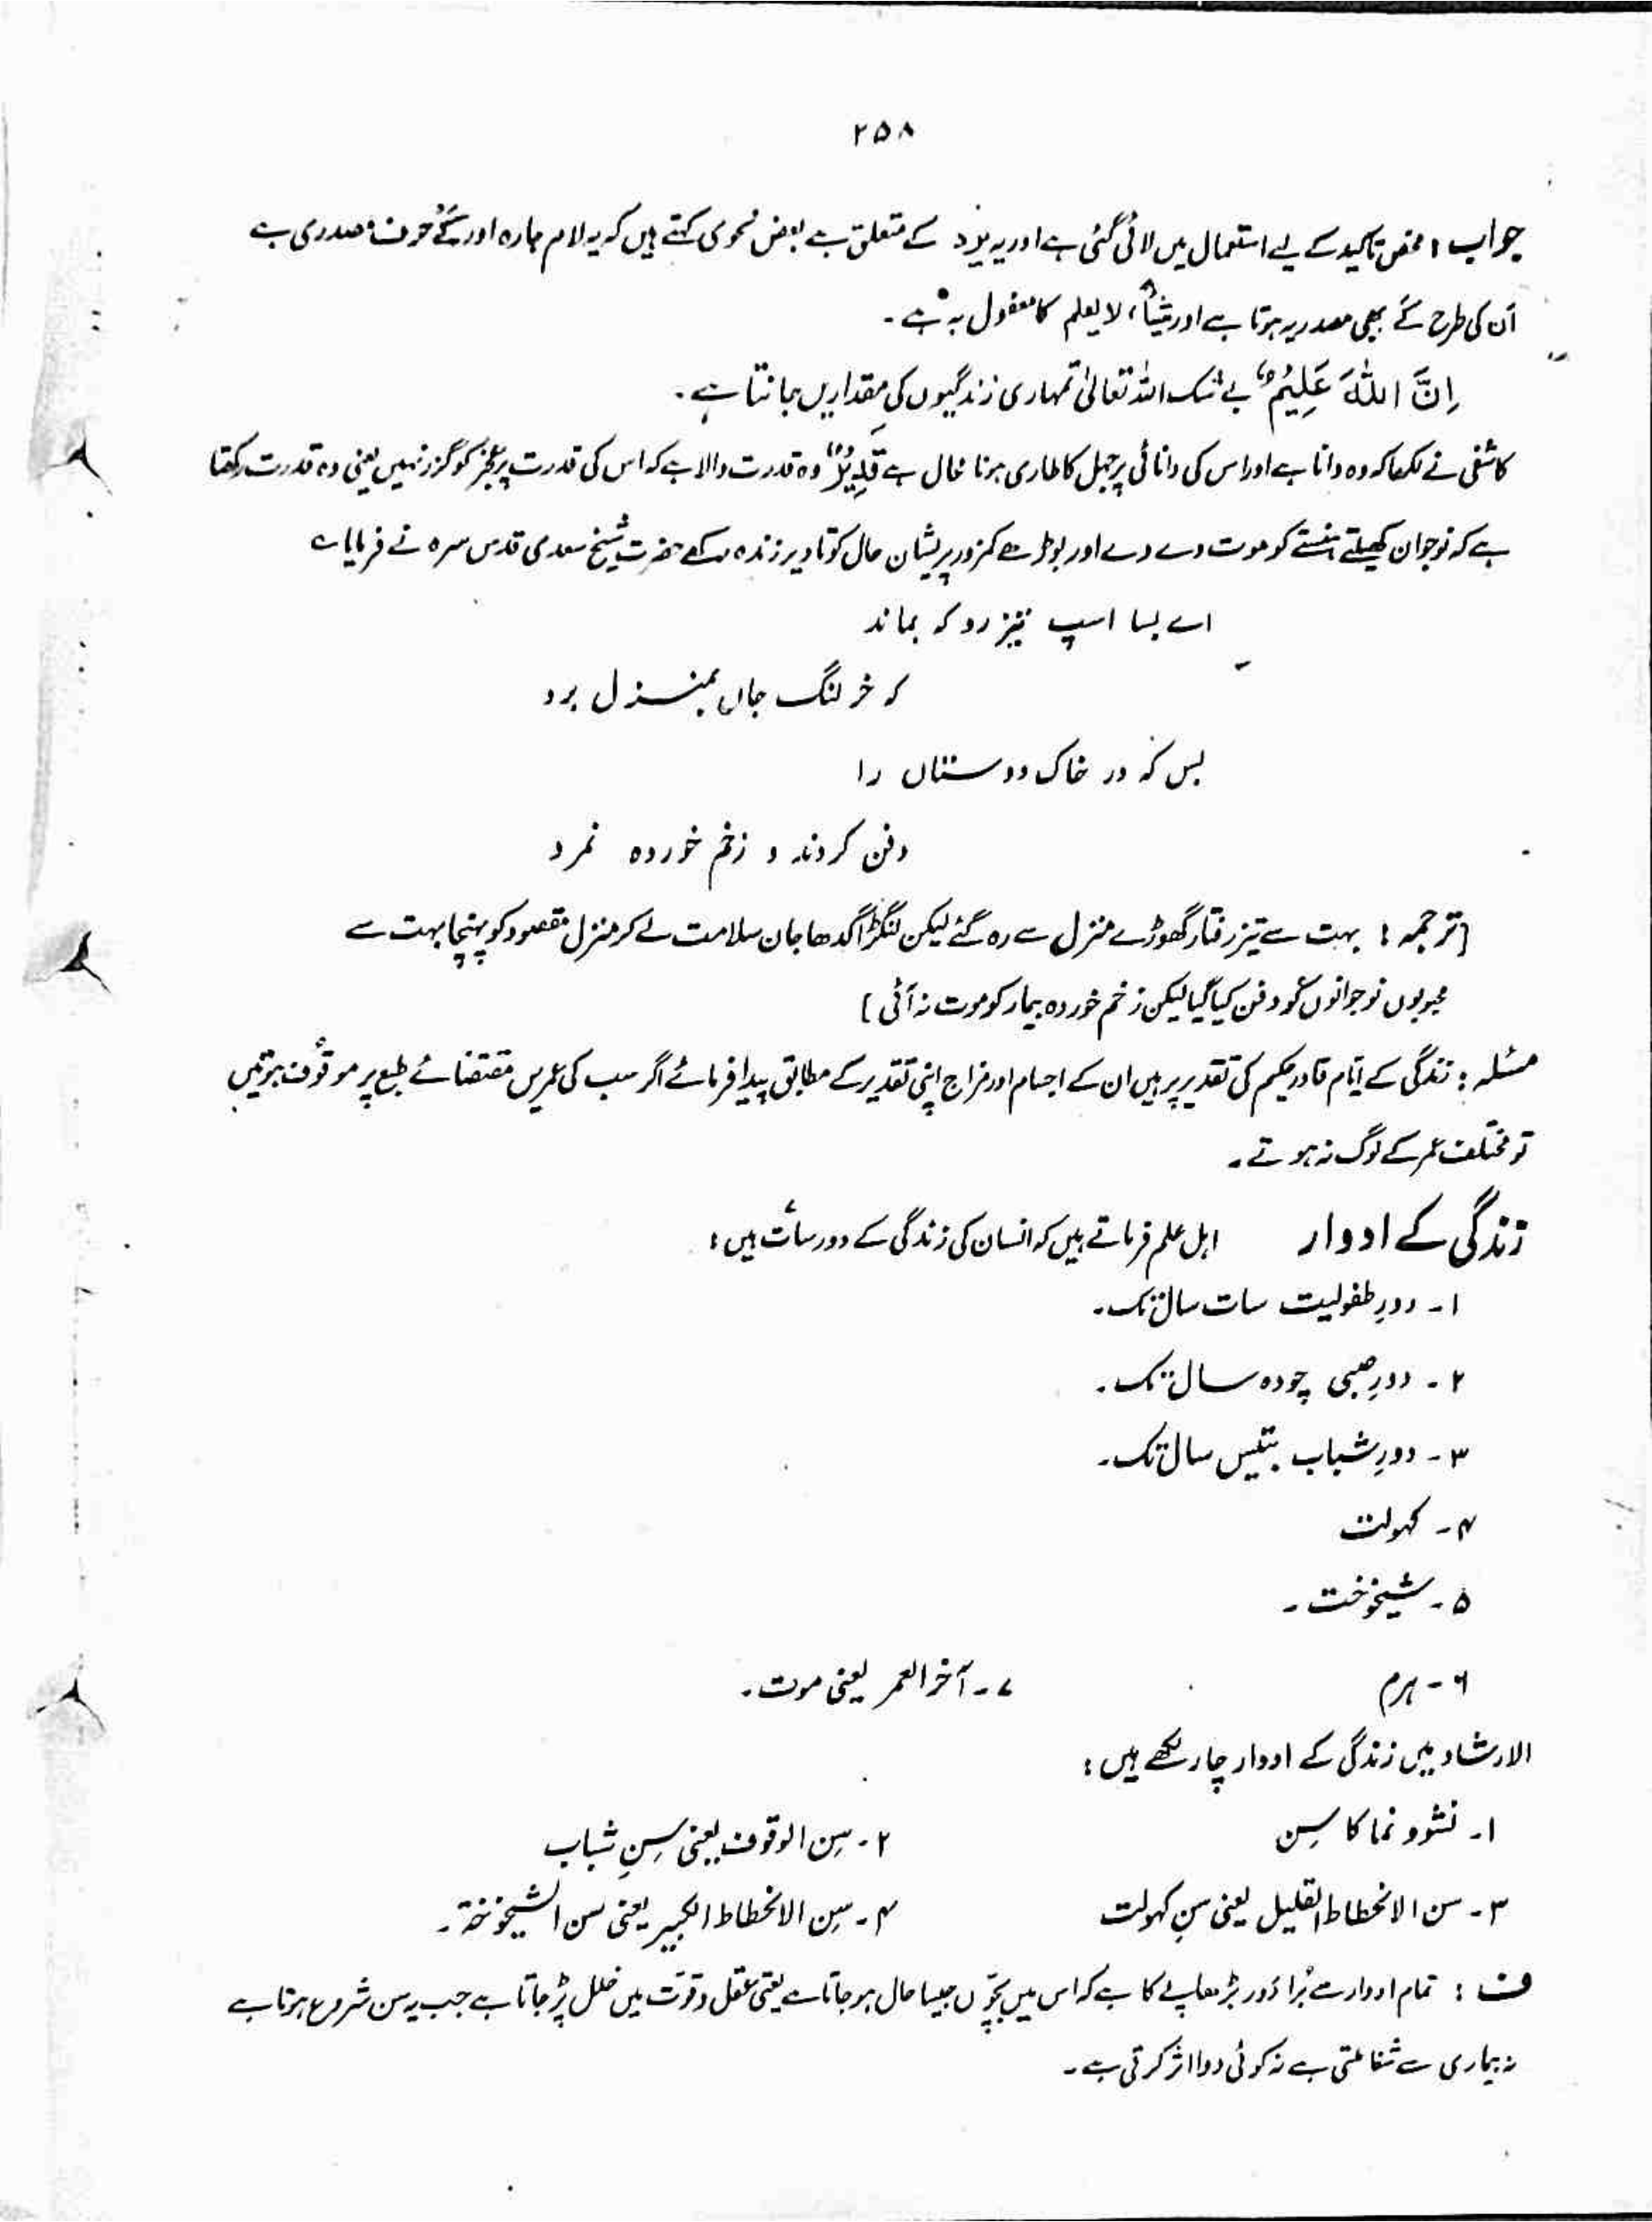 ۲۵۸
جواب : محض تاکید کے لیے استعمال میں لائی گئی ہے اور یہ یرد کے متعلق ہے بعض نحوی کہتے ہیں کہ یہ لام جارہ اور کَے حرف مصدری ہے
اَن کی طرح کَے بھی مصدریہ ہوتا ہے اور شیئاً، لا یعلم کا مفعول بہٖ ہے۔
اِنَّ اللّٰهَ عَلِيْمٌ بے شک اللہ تعالیٰ تمہاری زندگیوں کی مقداریں جانتا ہے۔
کاشفی نے لکھا کہ وہ دانا ہے اور اس کی دانائی پر جہل کا طاری ہونا محال ہے قَدِيْرٌ وہ قدرت والا ہے کہ اس کی قدرت پر عجز کو گزر نہیں یعنی وہ قدرت رکھتا
ہے کہ نوجوان کھیلتے ہنستے کو موت دے دے اور بوڑھے کمزور پریشان حال کو تا دیر زندہ رکھے حضرت شیخ سعدی قدس سرہ نے فرمایا ؎
اے بسا اسپ تیز رو کہ بماند
کہ خر لنگ جاں بمنزل برد
بس کہ در خاک دوستاں را
دفن کردند و زخم خوردہ نمرد
[ترجمہ : بہت سے تیز رفتار گھوڑے منزل سے رہ گئے لیکن لنگڑا گدھا جان سلامت لے کر منزل مقصود کو پہنچا بہت سے
محبوبوں نوجوانوں کو دفن کیا گیا لیکن زخم خوردہ بیمار کو موت نہ آئی]
مسئلہ : زندگی کے ایّام قادر حکیم کی تقدیر پر ہیں ان کے اجسام اور مزاج اپنی تقدیر کے مطابق پیدا فرمائے اگر سب کی عمریں مقتضائے طبع پر موقوف ہوتیں
تو مختلف عمر کے لوگ نہ ہوتے۔
زندگی کے ادوار اہل علم فرماتے ہیں کہ انسان کی زندگی کے دور سات ہیں :
۱۔ دورِ طفولیت سات سال تک۔
۲۔ دورِ صبی چودہ سال تک۔
۳۔ دورِ شباب بتیس سال تک۔
۴۔ کہولت
۵۔ شیخوخت۔
۶۔ ہرم ۷۔ آخر العمر یعنی موت۔
الارشاد میں زندگی کے ادوار چار لکھے ہیں :
۱۔ نشوونما کا سِن ۲۔ سِن الوقوف یعنی سِنِ شباب
۳۔ سن الانحطاط القلیل یعنی سنِ کہولت ۴۔ سِن الانحطاط الکبیر یعنی سن الشیخوخۃ۔
ف : تمام ادوار سے بُرا دَور بڑھاپے کا ہے کہ اس میں بچّوں جیسا حال ہو جاتا ہے یعنی عقل و قوّت میں خلل پڑ جاتا ہے جب یہ سن شروع ہوتا ہے
نہ بیماری سے شفا ملتی ہے نہ کوئی دوا اثر کرتی ہے۔